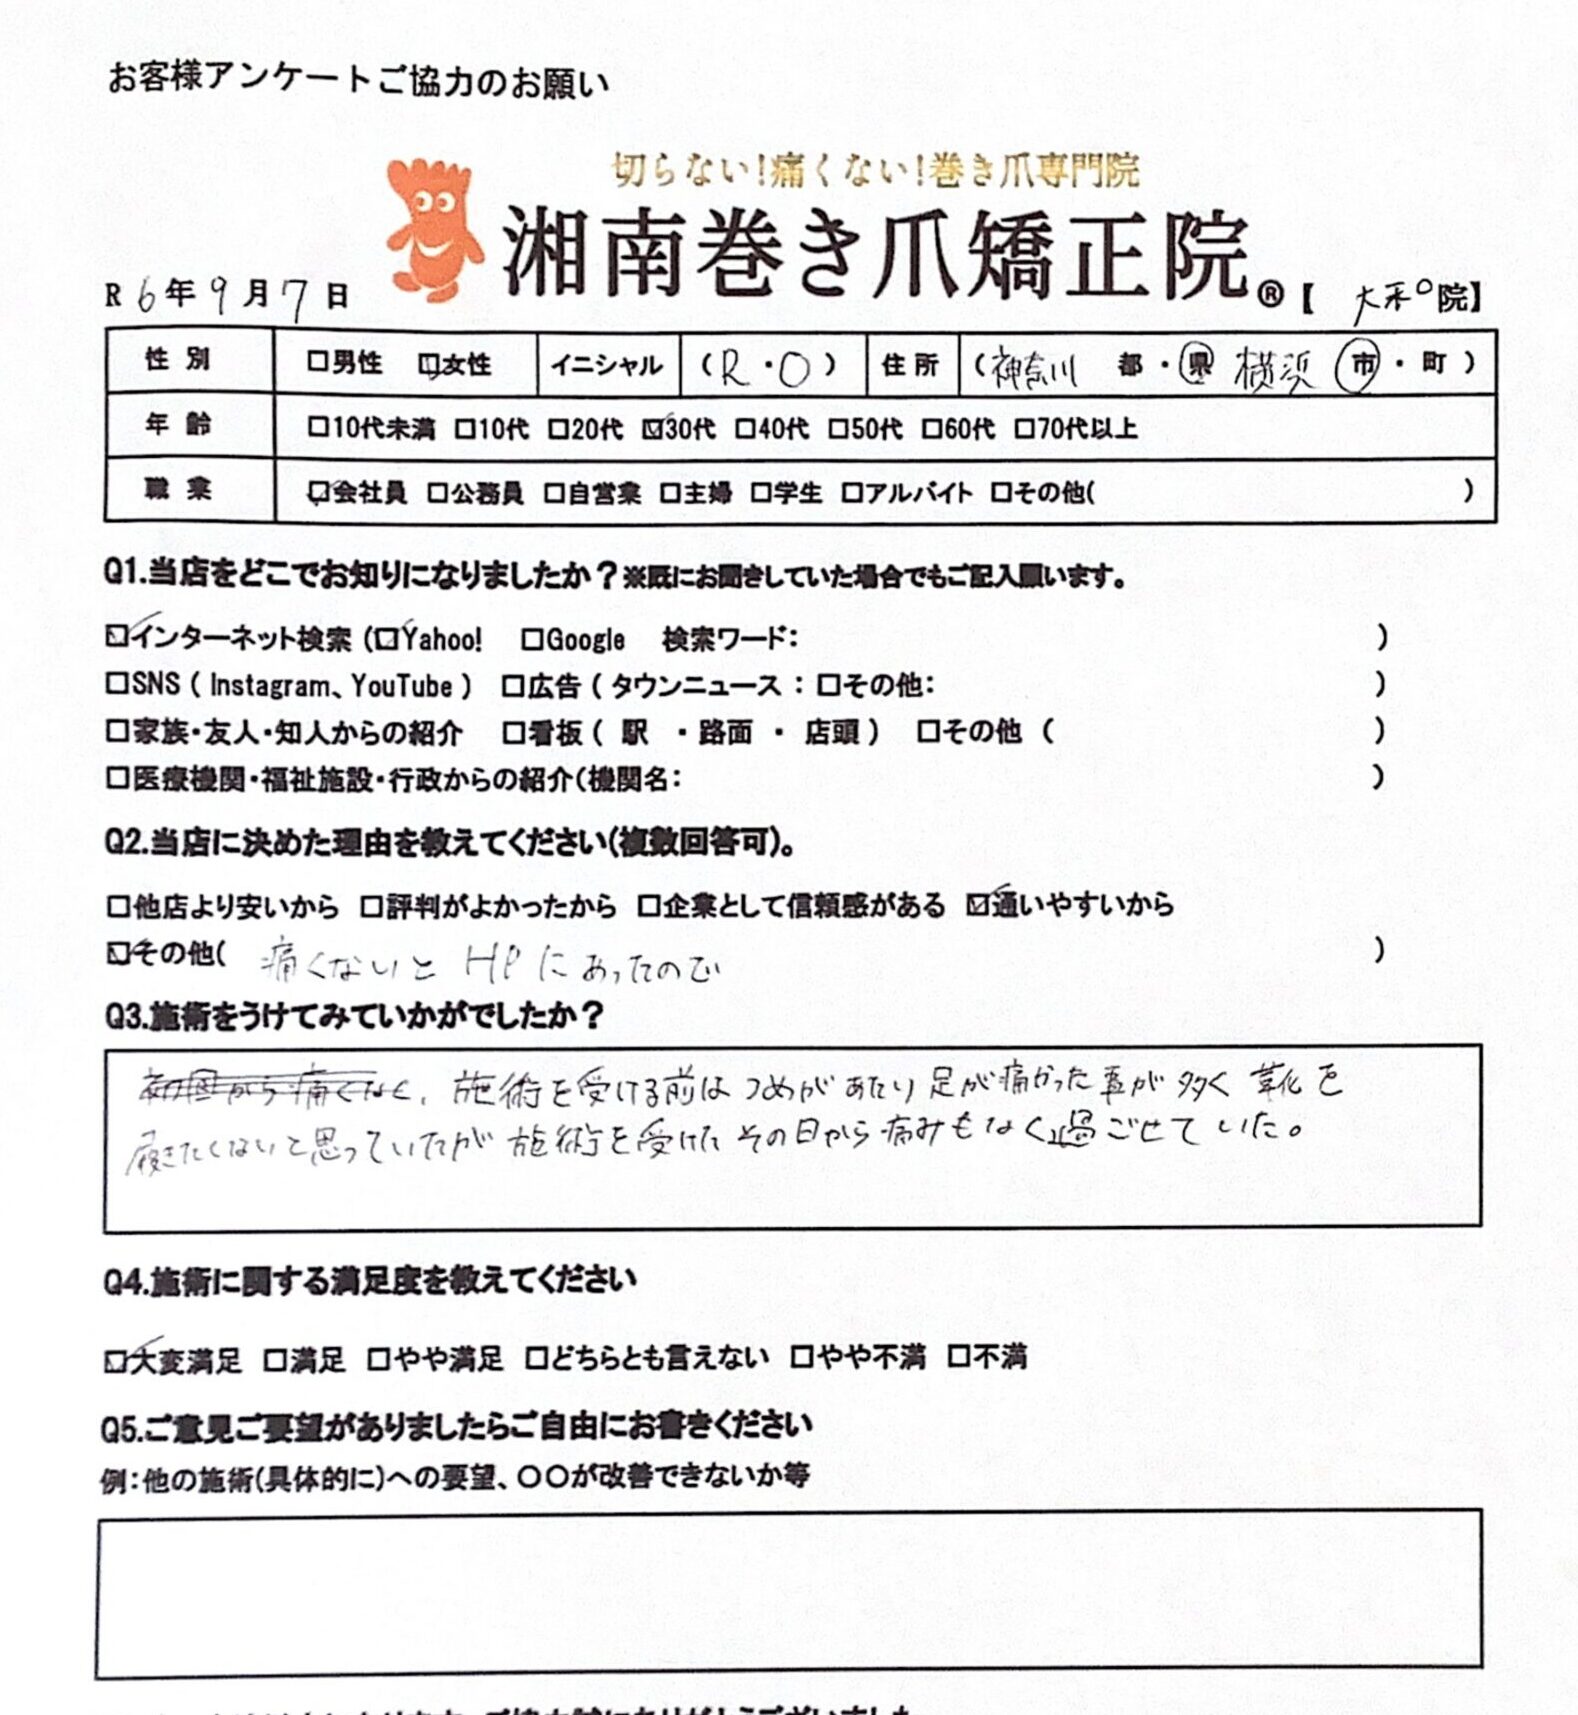 お客様アンケートご協力のお願い
切らない!痛くない!巻き爪専門院
湘南巻き爪矯正院®【 大和院】
R 6年 9月 7日
性別 □男性 ☑女性 イニシャル (R・O) 住所 (神奈川 都・県 横浜 市・町)
年齢 □10代未満 □10代 □20代 ☑30代 □40代 □50代 □60代 □70代以上
職業 ☑会社員 □公務員 □自営業 □主婦 □学生 □アルバイト □その他( )
Q1.当店をどこでお知りになりましたか?※既にお聞きしていた場合でもご記入願います。
☑インターネット検索 (☑Yahoo! □Google 検索ワード: )
□SNS ( Instagram、YouTube ) □広告 ( タウンニュース : □その他: )
□家族・友人・知人からの紹介 □看板 ( 駅 ・路面 ・ 店頭 ) □その他 ( )
□医療機関・福祉施設・行政からの紹介(機関名: )
Q2.当店に決めた理由を教えてください(複数回答可)。
□他店より安いから □評判がよかったから □企業として信頼感がある ☑通いやすいから
☑その他( 痛くないと HPに あったので )
Q3.施術をうけてみていかがでしたか?
初回から痛くなく、施術を受ける前は つめがあたり 足が痛かった事が多く 靴を
履きたくないと思っていたが 施術を受けた その日から痛みもなく過ごせていた。
Q4.施術に関する満足度を教えてください
☑大変満足 □満足 □やや満足 □どちらとも言えない □やや不満 □不満
Q5.ご意見ご要望がありましたらご自由にお書きください
例:他の施術(具体的に)への要望、〇〇が改善できないか等